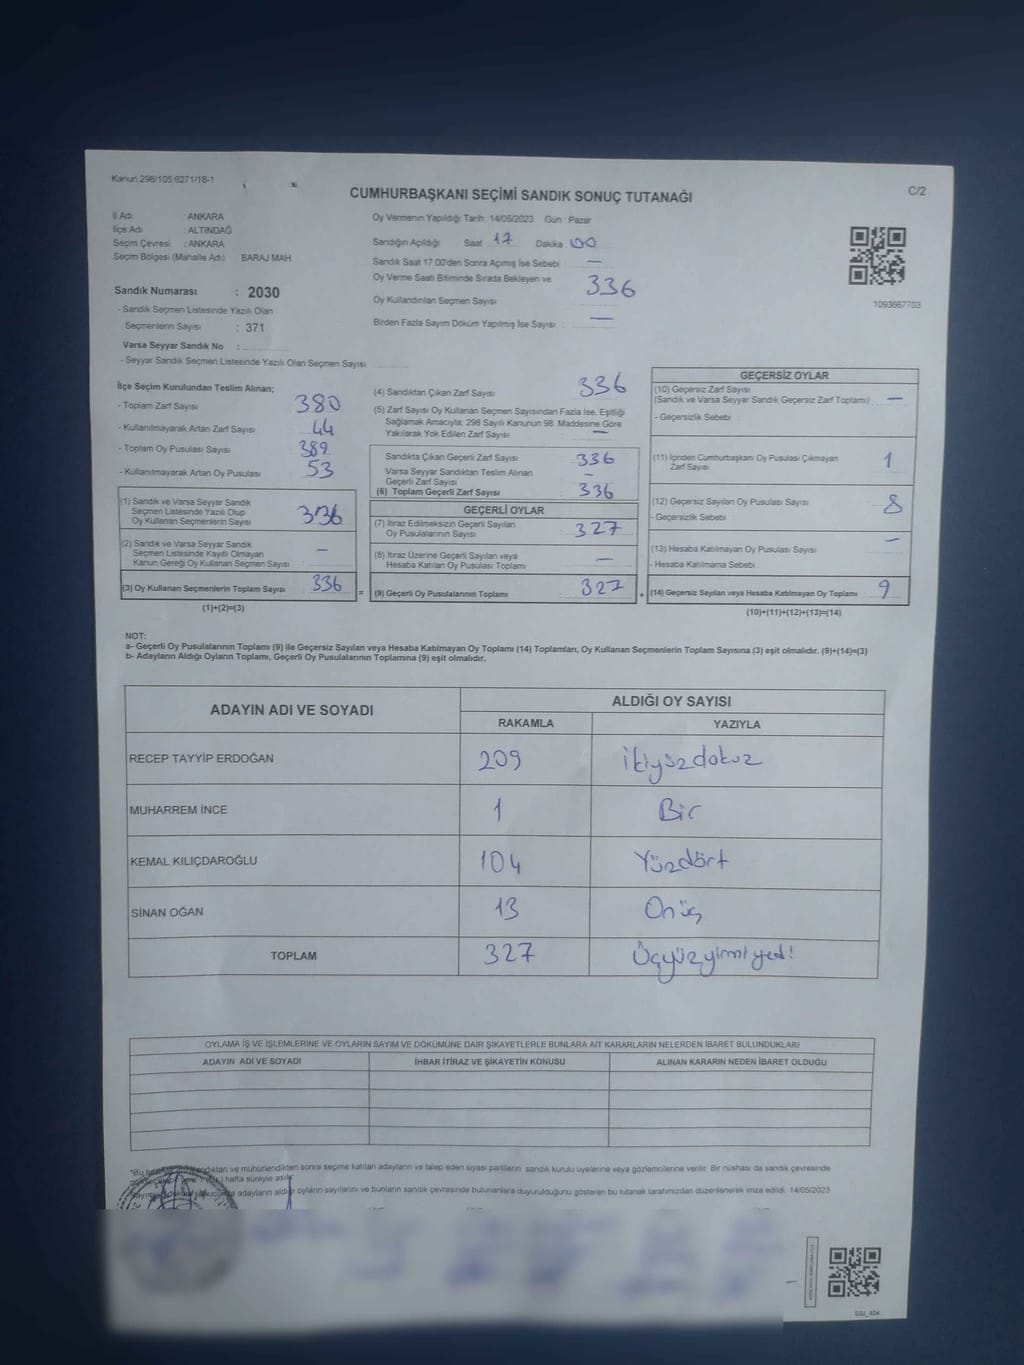 Kanun:298/105;6271/18-1
C/2
CUMHURBAŞKANI SEÇİMİ SANDIK SONUÇ TUTANAĞI
İl Adı : ANKARA
İlçe Adı : ALTINDAĞ
Seçim Çevresi : ANKARA
Seçim Bölgesi (Mahalle Adı) BARAJ MAH.
Sandık Numarası : 2030
- Sandık Seçmen Listesinde Yazılı Olan
Seçmenlerin Sayısı : 371
Varsa Seyyar Sandık No :
- Seyyar Sandık Seçmen Listesinde Yazılı Olan Seçmen Sayısı
Oy Vermenin Yapıldığı Tarih :14/05/2023 Gün Pazar
Sandığın Açıldığı Saat : 17 Dakika 00
Sandık Saat 17:00'den Sonra Açımış İse Sebebi : —
Oy Verme Saati Bitiminde Sırada Bekleyen ve
Oy Kullandırılan Seçmen Sayısı 336
Birden Fazla Sayım Döküm Yapılmış İse Sayısı : —
1093667703
İlçe Seçim Kurulundan Teslim Alınan;
- Toplam Zarf Sayısı 380
- Kullanılmayarak Artan Zarf Sayısı 44
- Toplam Oy Pusulası Sayısı 389
- Kullanılmayarak Artan Oy Pusulası 53
(1) Sandık ve Varsa Seyyar Sandık
Seçmen Listesinde Yazılı Olup
Oy Kullanan Seçmenlerin Sayısı 336
(2) Sandık ve Varsa Seyyar Sandık
Seçmen Listesinde Kayıtlı Olmayan
Kanun Gereği Oy Kullanan Seçmen Sayısı : —
(3) Oy Kullanan Seçmenlerin Toplam Sayısı 336
(1)+(2)=(3)
(4) Sandıktan Çıkan Zarf Sayısı 336
(5) Zarf Sayısı Oy Kullanan Seçmen Sayısından Fazla İse, Eşitliği
Sağlamak Amacıyla; 298 Sayılı Kanunun 98. Maddesine Göre
Yakılarak Yok Edilen Zarf Sayısı : —
Sandıkta Çıkan Geçerli Zarf Sayısı 336
Varsa Seyyar Sandıktan Teslim Alınan
Geçerli Zarf Sayısı —
(6) Toplam Geçerli Zarf Sayısı 336
GEÇERLİ OYLAR
(7) İtiraz Edilmeksizin Geçerli Sayılan
Oy Pusulalarının Sayısı 327
(8) İtiraz Üzerine Geçerli Sayılan veya
Hesaba Katılan Oy Pusulası Toplamı —
= (9) Geçerli Oy Pusulalarının Toplamı : 327
GEÇERSİZ OYLAR
(10) Geçersiz Zarf Sayısı
(Sandık ve Varsa Seyyar Sandık Geçersiz Zarf Toplamı) —
- Geçersizlik Sebebi :
(11) İçinden Cumhurbaşkanı Oy Pusulası Çıkmayan
Zarf Sayısı 1
(12) Geçersiz Sayılan Oy Pusulası Sayısı : 8
- Geçersizlik Sebebi
(13) Hesaba Katılmayan Oy Pusulası Sayısı —
- Hesaba Katılmama Sebebi :
+ (14) Geçersiz Sayılan veya Hesaba Katılmayan Oy Toplamı 9
(10)+(11)+(12)+(13)=(14)
NOT:
a- Geçerli Oy Pusulalarının Toplamı (9) ile Geçersiz Sayılan veya Hesaba Katılmayan Oy Toplamı (14) Toplamları, Oy Kullanan Seçmenlerin Toplam Sayısına (3) eşit olmalıdır. (9)+(14)=(3)
b- Adayların Aldığı Oyların Toplamı, Geçerli Oy Pusulalarının Toplamına (9) eşit olmalıdır.
ADAYIN ADI VE SOYADI
ALDIĞI OY SAYISI
RAKAMLA YAZIYLA
RECEP TAYYİP ERDOĞAN 209 İkiyüzdokuz
MUHARREM İNCE 1 Bir
KEMAL KILIÇDAROĞLU 104 Yüzdört
SİNAN OĞAN 13 Onüç
TOPLAM 327 Üçyüzyirmiyedi
OYLAMA İŞ VE İŞLEMLERİNE VE OYLARIN SAYIM VE DÖKÜMÜNE DAİR ŞİKAYETLERLE BUNLARA AİT KARARLARIN NELERDEN İBARET BULUNDUKLARI
ADAYIN ADI VE SOYADI İHBAR İTİRAZ VE ŞİKAYETİN KONUSU ALINAN KARARIN NEDEN İBARET OLDUĞU
ve mühürlendikten sonra seçime katılan adayların ve talep eden siyasi partilerin sandık kurulu üyelerine veya gözlemcilerine verilir. Bir nüshası da sandık çevresinde
hafta süreyle asılır.
adayların aldığı oyların sayılarını ve bunların sandık çevresinde bulunanlara duyurulduğunu gösteren bu tutanak tarafımızdan düzenlenerek imza edildi. 14/05/2023
SSI_404